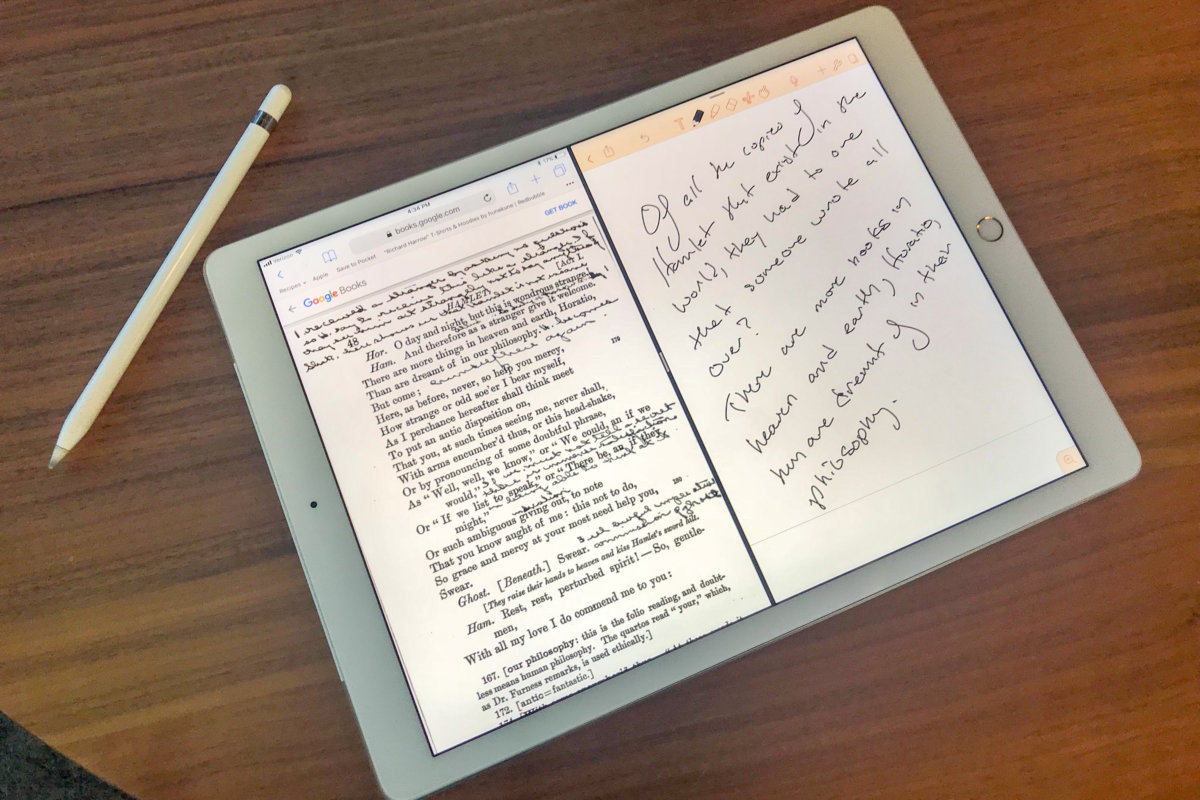 Verizon
4:34 PM
17%
books.google.com
Recipes
Apple
Save to Pocket
"Richard Harrow" T-Shirts & Hoodies by hunekune | Redbubble
Google Books
GET BOOK
48
HAMLET
[ACT I.
Hor. O day and night, but this is wondrous strange!
Ham. And therefore as a stranger give it welcome.
There are more things in heaven and earth, Horatio,
Than are dreamt of in our philosophy.
But come;
Here, as before, never, so help you mercy,
170
How strange or odd soe'er I bear myself,
As I perchance hereafter shall think meet
To put an antic disposition on,
That you, at such times seeing me, never shall,
With arms encumber'd thus, or this head-shake,
Or by pronouncing of some doubtful phrase,
As "Well, well, we know," or "We could, an if we
would,"
Or "If we list to speak," or "There be, an if they
might,"
Or such ambiguous giving out, to note
That you know aught of me: this not to do,
180
So grace and mercy at your most need help you,
Swear.
Ghost. [Beneath.] Swear.
[They raise their hands to heaven and kiss Hamlet's sword hilt.
Ham. Rest, rest, perturbed spirit!—So, gentle-
men,
With all my love I do commend me to you:
167. [our philosophy: this is the folio reading, and doubt-
less means human philosophy. The quartos read "your," which,
as Dr. Furness remarks, is used ethically.]
172. [antic=fantastic.]
Of all the copies of
Hamlet that existed in the
world, they had to one
that someone wrote all
over?
There are more books in
heaven and earth, Horatio,
than are dreamt of in
philosophy.